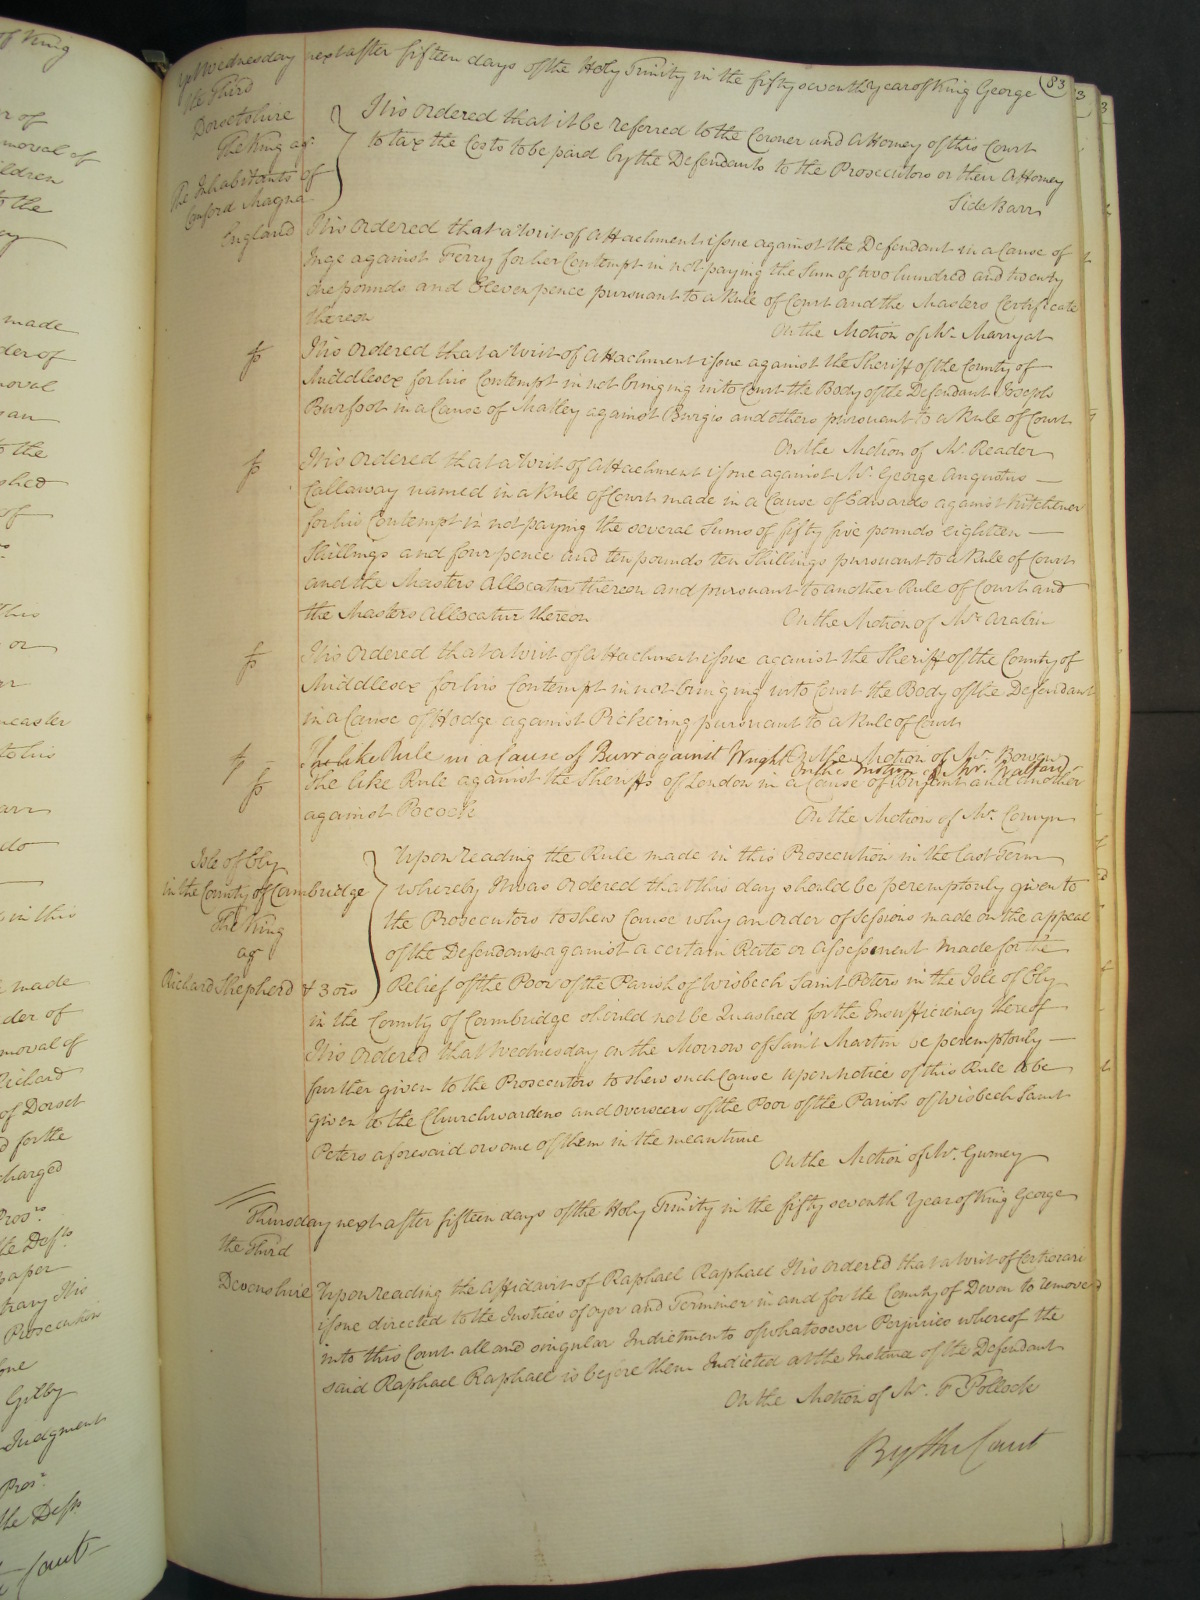 Yet Wednesday next after fifteen days of the Holy Trinity in the fifty seventh Year of King George
83
the Third
Dorsetshire
The King agt
The Inhabitants of
Canford Magna
It is Ordered that it be referred to the Coroner and Attorney of this Court
to tax the Costs to be paid by the Defendants to the Prosecutors or their Attorney
Side Barr
England It is Ordered that a Writ of Attachment issue against the Defendant in a Cause of
Inge against Ferry for her Contempt in not paying the Sum of two hundred and twenty
one pounds and Eleven pence pursuant to a Rule of Court and the Masters Certificate
thereon
On the Motion of Mr. Marryat
It is Ordered that a Writ of Attachment issue against the Sheriff of the County of
Middlesex for his Contempt in not bringing into Court the Body of the Defendant Joseph
Burfoot in a Cause of Matley against Burgis and others pursuant to a Rule of Court
On the Motion of Mr. Reader
It is Ordered that a Writ of Attachment issue against Mr. George Augustus
Callaway named in a Rule of Court made in a Cause of Edwards against Kitchener
for his Contempt in not paying the several Sums of fifty five pounds eighteen
Shillings and four pence and ten pounds ten Shillings pursuant to a Rule of Court
and the Masters Allocatur thereon and pursuant to another Rule of Court and
the Masters Allocatur thereon
On the Motion of Mr Arabin
It is Ordered that a Writ of Attachment issue against the Sheriff of the County of
Middlesex for his Contempt in not bringing into Court the Body of the Defendant
in a Cause of Hodge against Pickering pursuant to a Rule of Court
On the Motion of Mr. Walford
The like Rule in a Cause of Burr against Wright On the Motion of Mr. Bowen
The like Rule against the Sheriffs of London in a Cause of and another
against Pocock
On the Motion of Mr. Comyn
Isle of Ely
in the County of Cambridge
The King
agt
Richard Shepherd & 3 ors
Upon reading the Rule made in this Prosecution in the last Term
whereby It was Ordered that this day should be peremptorily given to
the Prosecutors to shew Cause why an Order of Sessions made on the appeal
of the Defendants against a certain Rate or Assessment made for the
Relief of the Poor of the Parish of Wisbech Saint Peters in the Isle of Ely
in the County of Cambridge should not be Quashed for the Insufficiency thereof
It is Ordered that Wednesday on the Morrow of Saint Martin be peremptorily
further given to the Prosecutors to shew such Cause upon notice of this Rule to be
given to the Churchwardens and Overseers of the Poor of the Parish of Wisbech Saint
Peters aforesaid or some of them in the meantime
On the Motion of Mr. Gurney
Thursday next after fifteen days of the Holy Trinity in the fifty seventh Year of King George
the Third
Devonshire Upon reading the Affidavit of Raphael Raphael It is Ordered that a Writ of Certiorari
issue directed to the Justices of oyer and Terminer in and for the County of Devon to remove
into this Court all and singular Indictments of whatsoever Perjuries whereof the
said Raphael Raphael is before them Indicted at the Instance of the Defendant
On the Motion of Mr. F Pollock
By the Court